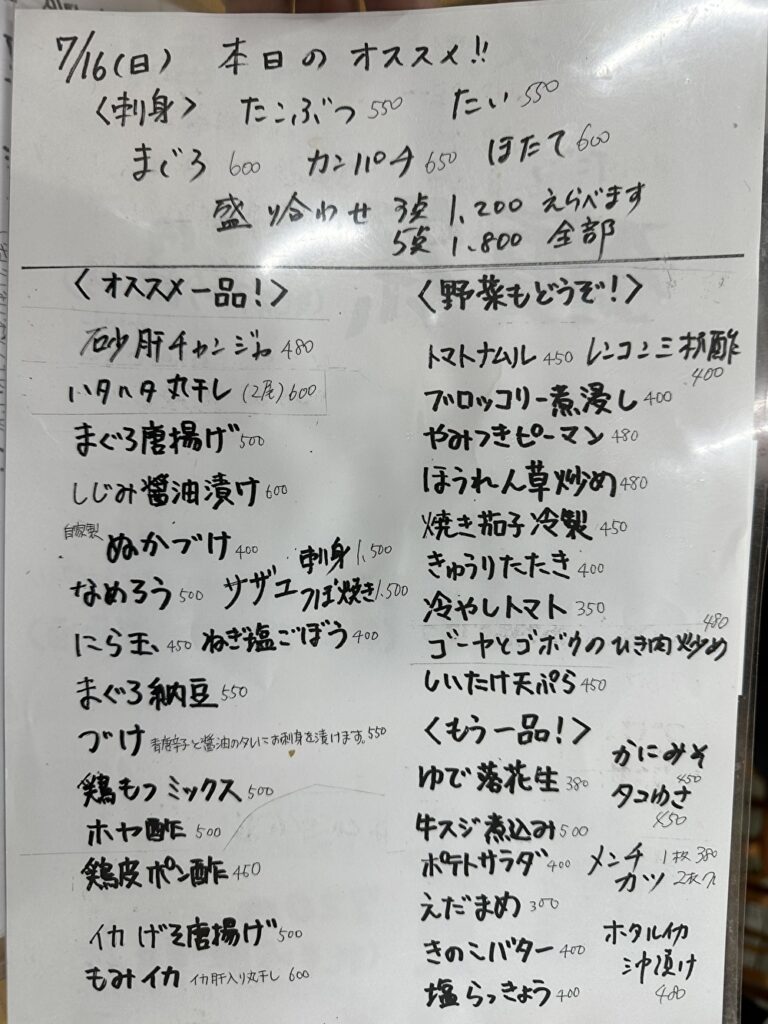 7/16(日) 本日のオススメ!!
〈刺身〉 たこぶつ 550 たい 550
まぐろ 600 カンパチ 650 ほたて 600
盛り合わせ 3点 1,200 えらべます
5点 1,800 全部
〈オススメ一品!〉
砂肝チャンジャ 480
ハタハタ丸干し (2尾) 600
まぐろ唐揚げ 500
しじみ醤油漬け 600
自家製 ぬかづけ 400
なめろう 500 サザエ 刺身 1,500
つぼ焼き 1,500
にら玉 450 ねぎ塩ごぼう 400
まぐろ納豆 550
づけ 青唐辛子と醤油のタレにお刺身を漬けます。550
鶏もつミックス 500
ホヤ酢 500
鶏皮ポン酢 450
イカげそ唐揚げ 500
もみイカ イカ肝入り丸干し 600
〈野菜もどうぞ!〉
トマトナムル 450 レンコン三杯酢
400
ブロッコリー煮浸し 400
やみつきピーマン 480
ほうれん草炒め 480
焼き茄子冷製 450
きゅうりたたき 400
冷やしトマト 350
ゴーヤとゴボウのひき肉炒め 480
しいたけ天ぷら 450
〈もう一品!〉
かにみそ
450
ゆで落花生 380
タコわさ
450
牛スジ煮込み 500
ポテトサラダ 400
メンチ 1枚 380
カツ 2枚
えだまめ 300
きのこバター 400
ホタルイカ
沖漬け
480
塩らっきょう 400